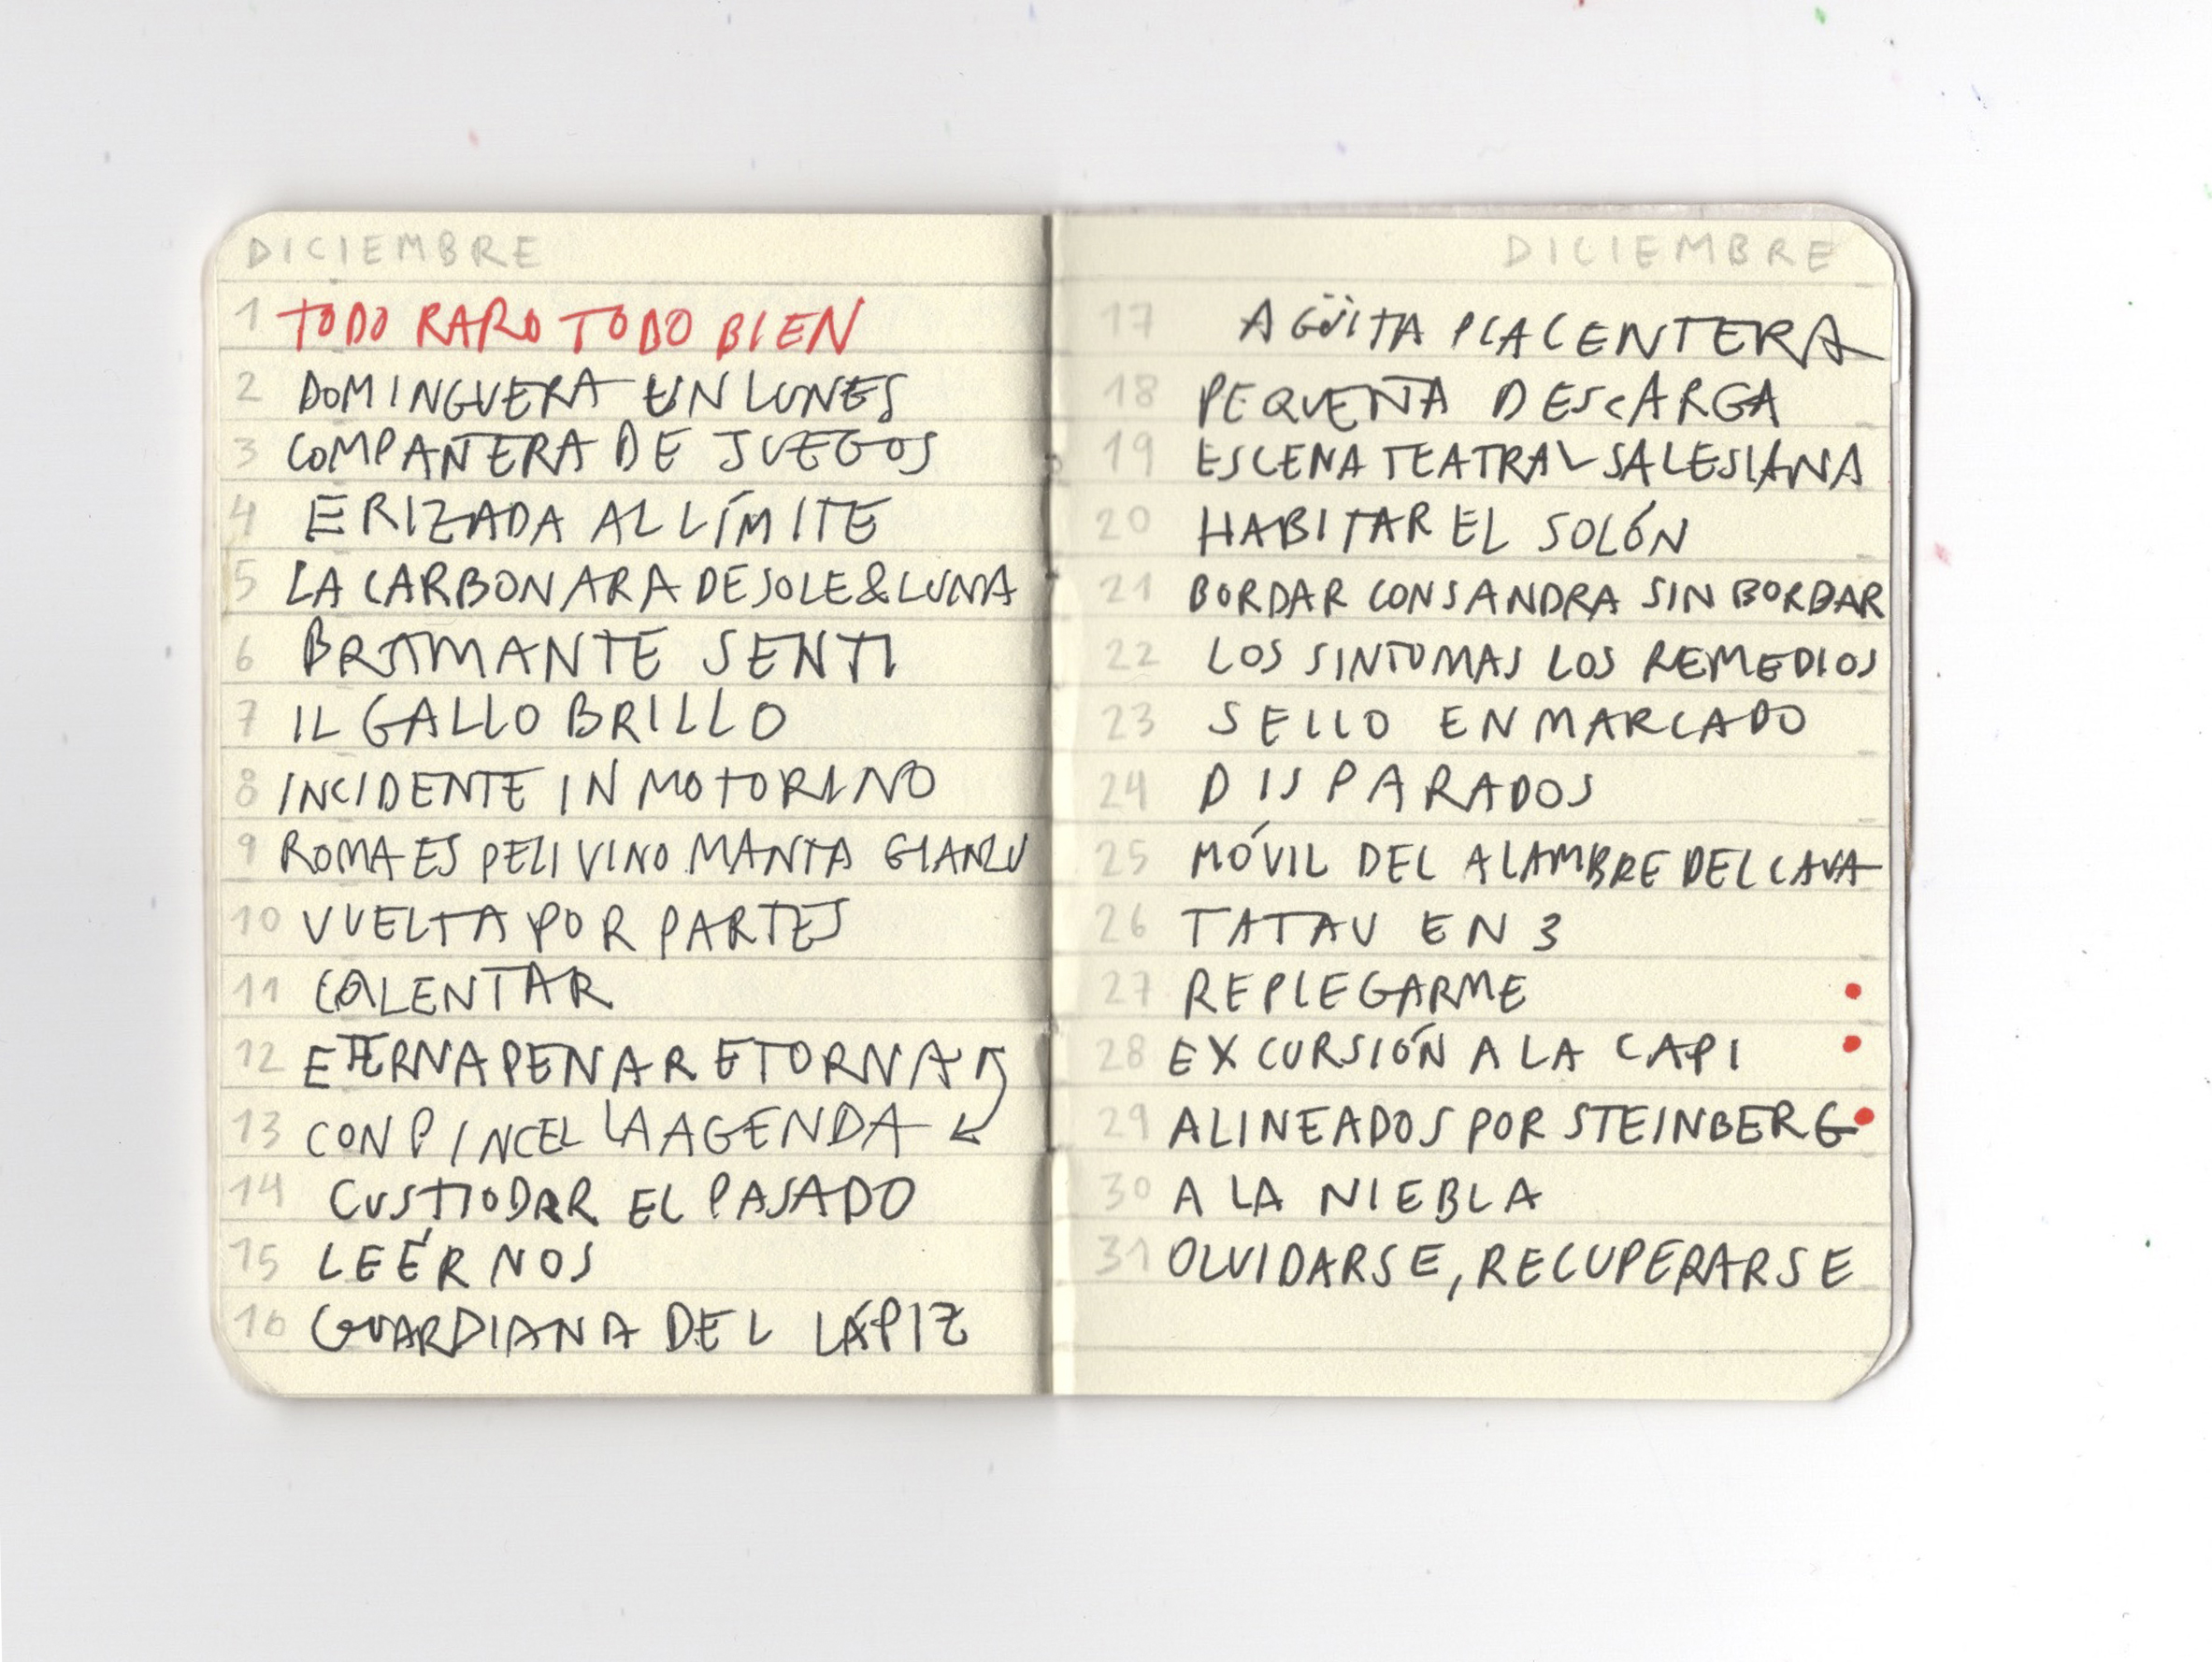 DICIEMBRE
1 TODO RARO TODO BIEN
2 DOMINGUERA UN LUNES
3 COMPAÑERA DE JUEGOS
4 ERIZADA AL LÍMITE
5 LA CARBONARA DE SOLE&LUNA
6 BRAMANTE SENTI
7 IL GALLO BRILLO
8 INCIDENTE IN MOTORINO
9 ROMA ES PELI VINO MANTA GIANLU
10 VUELTA POR PARTES
11 CALENTAR
12 ETERNA PENA RETORNA
13 CON PINCEL LA AGENDA
14 CUSTIODAR EL PASADO
15 LEÉRNOS
16 GUARDIANA DEL LÁPIZ
DICIEMBRE
17 AGÜITA PLACENTERA
18 PEQUEÑA DESCARGA
19 ESCENA TEATRAL SALESIANA
20 HABITAR EL SOLÓN
21 BORDAR CON SANDRA SIN BORDAR
22 LOS SINTOMAS LOS REMEDIOS
23 SELLO ENMARCADO
24 DISPARADOS
25 MÓVIL DEL ALAMBRE DEL CAVA
26 TATAU EN 3
27 REPLEGARME
28 EXCURSIÓN A LA CAPI
29 ALINEADOS POR STEINBERG
30 A LA NIEBLA
31 OLVIDARSE, RECUPERARSE